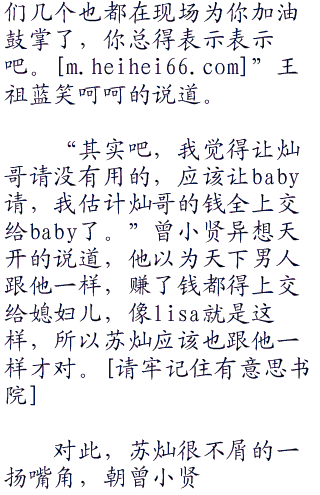 们几个也都在现场为你加油
鼓掌了，你总得表示表示
吧。[m.heihei66.com]”王
祖蓝笑呵呵的说道。
“其实吧，我觉得让灿
哥请没有用的，应该让baby
请，我估计灿哥的钱全上交
给baby了。”曾小贤异想天
开的说道，他以为天下男人
跟他一样，赚了钱都得上交
给媳妇儿，像lisa就是这
样，所以苏灿应该也跟他一
样才对。[请牢记住有意思书
院]
对此，苏灿很不屑的一
扬嘴角，朝曾小贤